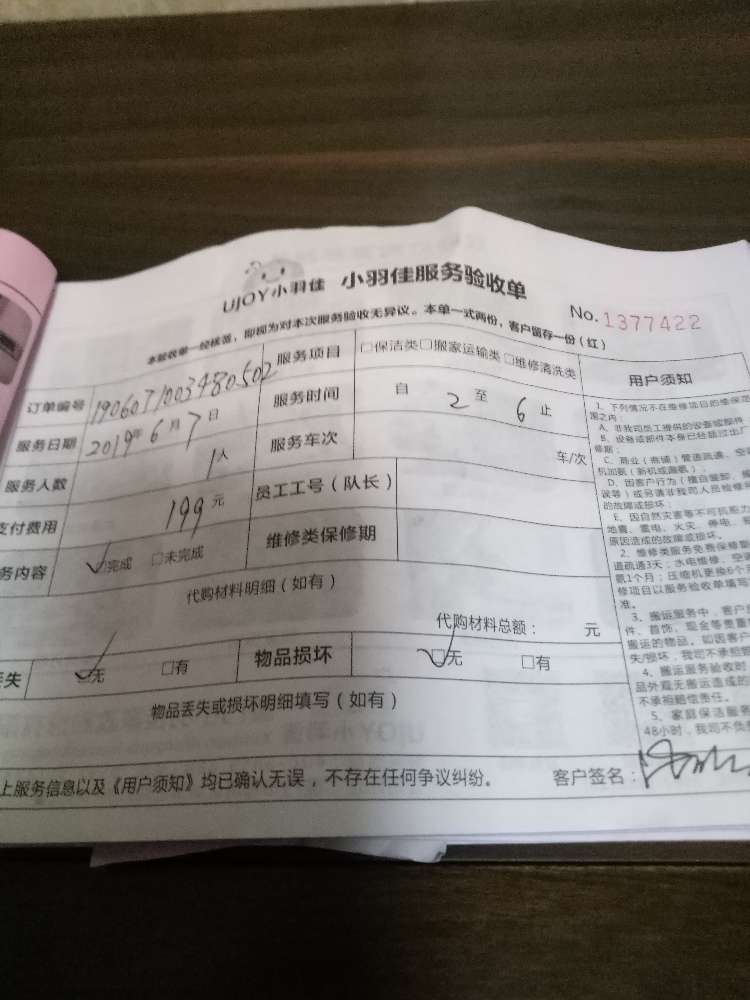 UJOY小羽佳 小羽佳服务验收单
No. 1377422
本验收单一经核签，即视为对本次服务验收无异议。本单一式两份，客户留存一份（红）
订单编号 1906071003480502 服务项目 □保洁类□搬家运输类□维修清洗类
服务日期 2019年 6月 7日 服务时间 自 2 至 6 止
服务人数 1人 服务车次 车/次
支付费用 199元 员工工号（队长）
务内容 ☑完成 □未完成 维修类保修期
代购材料明细（如有）
代购材料总额： 元
丢失 ☑无 □有 物品损坏 ☑无 □有
物品丢失或损坏明细填写（如有）
上服务信息以及《用户须知》均已确认无误，不存在任何争议纠纷。 客户签名：
用户须知
1、下列情况不在维修项目的维保范
围之内：
A、非我司员工提供的设备或部件
B、设备或部件本身已经超过出厂
修期；
C、商业（商铺）管道疏通、空
机加氨（新机或漏氨）；
D、因客户行为（擅自置卸、
误等）或另请非我司人员检修
的故障或损坏；
E、因自然灾害等不可抗力
地震、雷电、火灾、停电、
原因造成的故障或损坏。
2、维修类服务免费保修
道疏通3天；水电维修、空
氨1个月；压缩机更换6个
修项目以服务验收单填写
准。
3、搬运服务中，客户
件、首饰、现金等贵重
搬运的物品。如因客户
失/损坏，我司不承担赔
4、搬运服务验收时
品外观无搬运造成的
不承担赔偿责任。
5、家庭保洁服务
48小时，我司不负